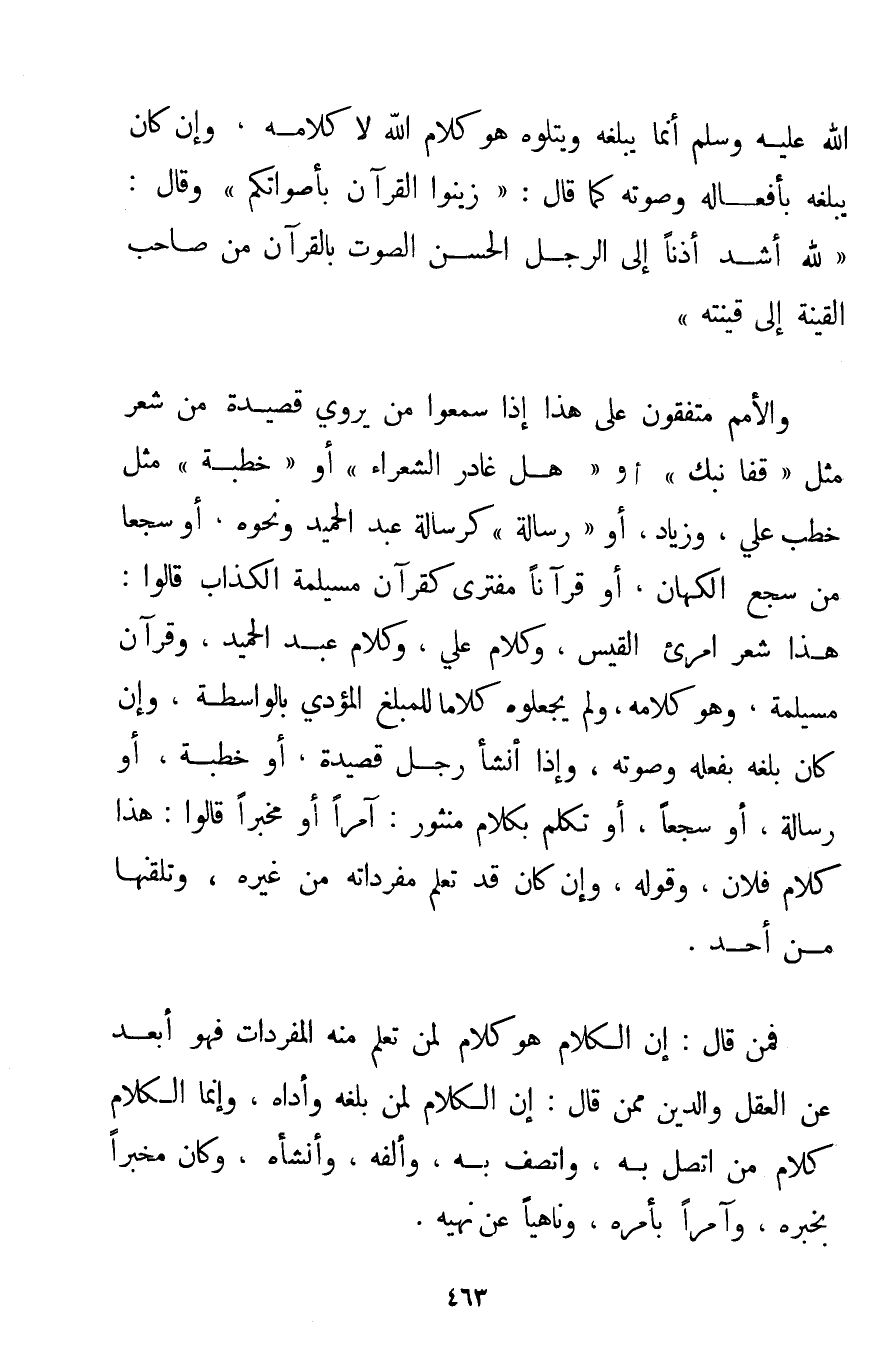 الله عليه وسلم أنما يبلغه ويتلوه هو كلام الله لا كلامه ، وإن كان
يبلغه بأفعاله وصوته كما قال : « زينوا القرآن بأصواتكم » وقال :
« لله أشد أذناً إلى الرجل الحسن الصوت بالقرآن من صاحب
القينة إلى قينته »
والأمم متفقون على هذا إذا سمعوا من يروي قصيدة من شعر
مثل « قفا نبك » أو « هل غادر الشعراء » أو « خطبة » مثل
خطب علي ، وزياد ، أو « رسالة » كرسالة عبد الحميد ونحوه ، أو سجعا
من سجع الكهان ، أو قرآناً مفترى كقرآن مسيلمة الكذاب قالوا :
هذا شعر امرئ القيس ، وكلام علي ، وكلام عبد الحميد ، وقرآن
مسيلمة ، وهو كلامه ، ولم يجعلوه كلاما للمبلغ المؤدي بالواسطة ، وإن
كان بلغه بفعله وصوته ، وإذا أنشأ رجل قصيدة ، أو خطبة ، أو
رسالة ، أو سجعاً ، أو تكلم بكلام منثور : آمراً أو مخبراً قالوا : هذا
كلام فلان ، وقوله ، وإن كان قد تعلم مفرداته من غيره ، وتلقنها
من أحد .
فمن قال : إن الكلام هو كلام لمن تعلم منه المفردات فهو أبعد
عن العقل والدين ممن قال : إن الكلام لمن بلغه وأداه ، وإنما الكلام
كلام من اتصل به ، واتصف به ، وألفه ، وأنشأه ، وكان مخبراً
بخبره ، وآمراً بأمره ، وناهياً عن نهيه .
٤٦٣